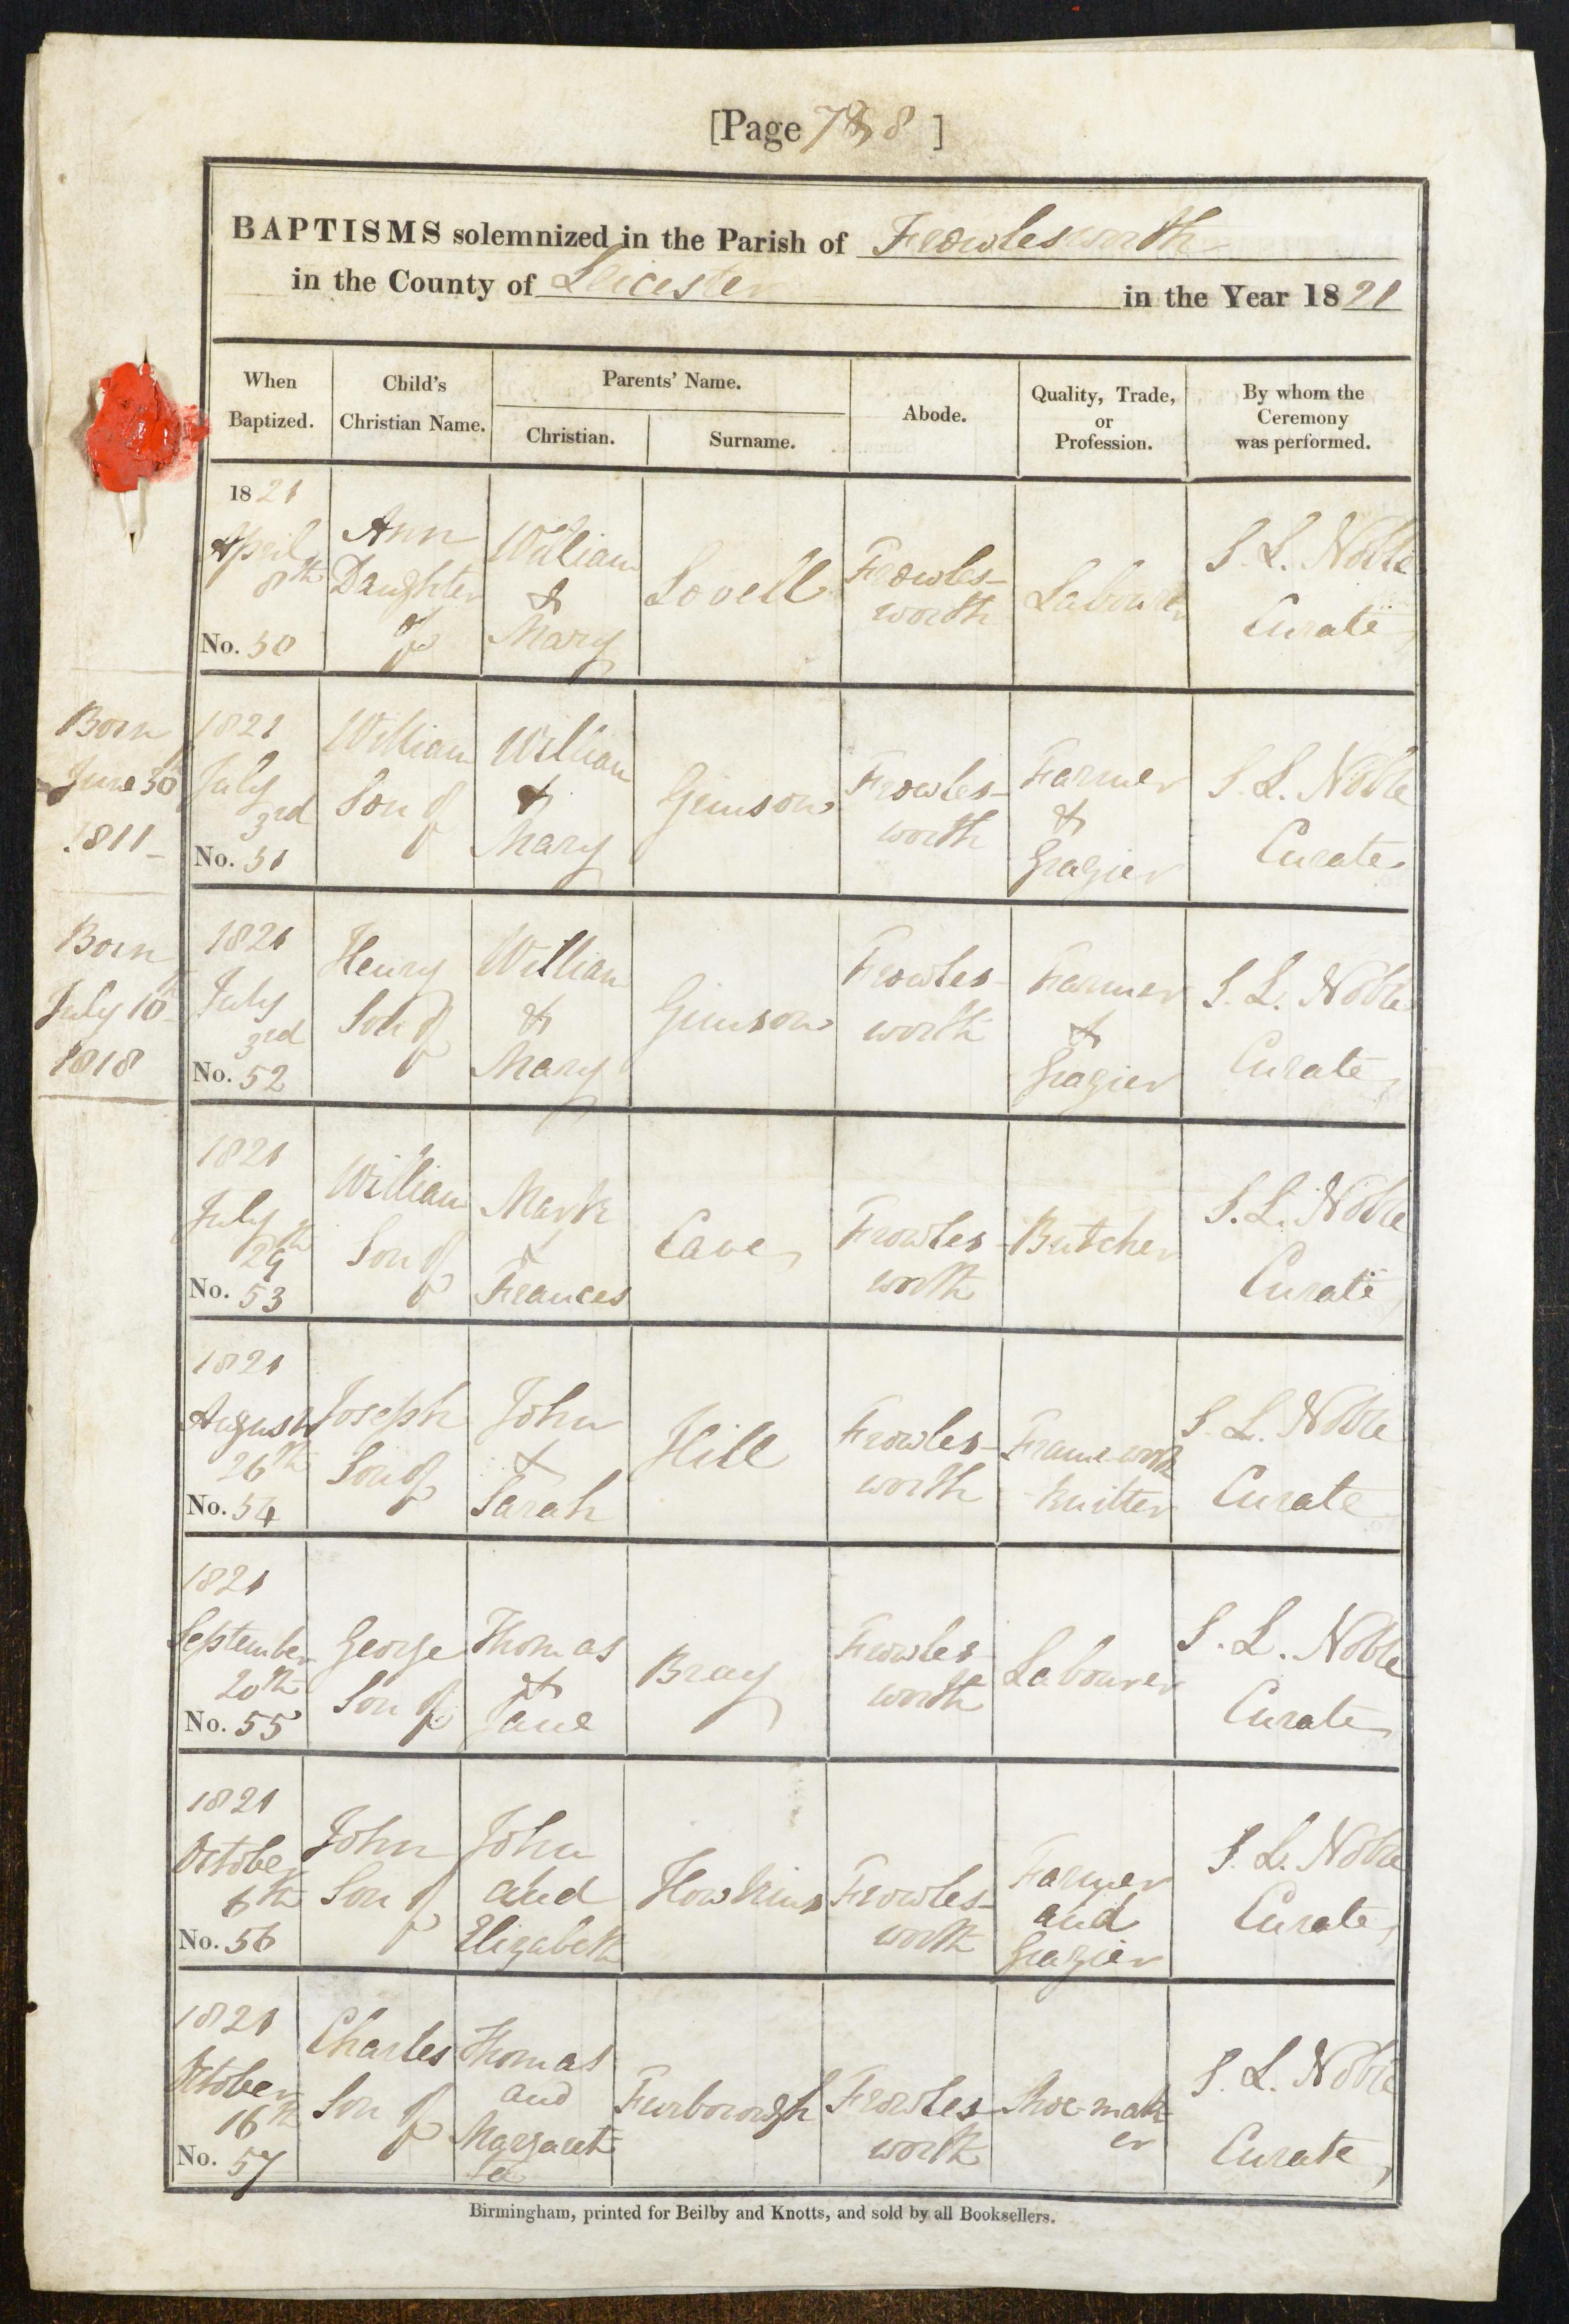 [Page 7 & 8 ]
BAPTISMS solemnized in the Parish of Frowlesworth
in the County of Leicester in the Year 1821
When Baptized. Child's Christian Name. Parents' Name. Christian. Surname. Abode. Quality, Trade, or Profession. By whom the Ceremony was performed.
1821
April 8th
No. 50
Ann
Daughter
of
William
&
Mary
Lovell
Frowles-
worth
Labourer
S. L. Noble
Curate
Born
June 30
1811
1821
July
3rd
No. 51
William
Son of
William
&
Mary
Gimson
Frowles-
worth
Farmer
&
Grazier
S. L. Noble
Curate
Born
July 10th
1818
1821
July
3rd
No. 52
Henry
Son of
William
&
Mary
Gimson
Frowles-
worth
Farmer
&
Grazier
S. L. Noble
Curate
1821
July
29th
No. 53
William
Son of
Mark
&
Frances
Cave
Frowles-
worth
Butcher
S. L. Noble
Curate
1821
August
26th
No. 54
Joseph
Son of
John
&
Sarah
Hill
Frowles-
worth
Frame-work
Knitter
S. L. Noble
Curate
1821
September
20th
No. 55
George
Son of
Thomas
&
Jane
Bray
Frowles-
worth
Labourer
S. L. Noble
Curate
1821
October
6th
No. 56
John
Son of
John
and
Elizabeth
Howkins
Frowles-
worth
Farmer
and
Grazier
S. L. Noble
Curate
1821
October
16th
No. 57
Charles
Son of
Thomas
and
Margaret
Furborough
Frowles-
worth
Shoe-mak-
er
S. L. Noble
Curate
Birmingham, printed for Beilby and Knotts, and sold by all Booksellers.